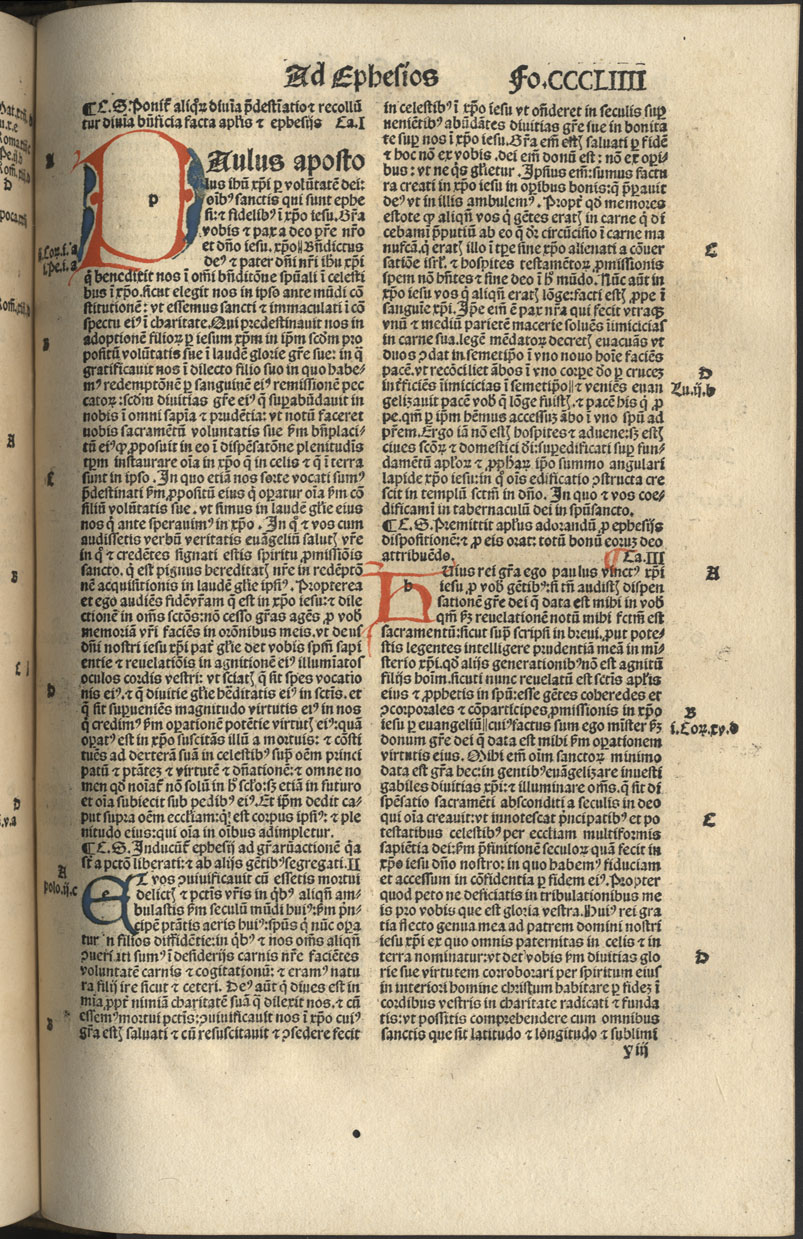 Ad Ephesios Fo.CCCLIIII
¶C.S. Ponit᷒ aliqr̃ diuīa p̄destīatio ⁊ recollū
tur diuīa bn̄ficia facta apl̄is ⁊ ephesijs Ca.I
PAulus aposto
lus ihū xp̄i ꝑ volūtatē dei:
oīb᷒ sanctis qui sunt ephe
si: ⁊ fidelib᷒ ī xp̄o iesu. Gr̄a
vobis ⁊ pax a deo pr̄e nr̄o
et dn̄o iesu. xp̄o‖Bn̄dictus
de᷒ ⁊ pater dn̄i nr̄i ihū xp̄i
q̄ benedixit nos ī om̄i bn̄ditōne spūali ī celesti
bus ī xp̄o. sicut elegit nos in ipso ante mūdi cō
stitutionē: vt essemus sancti ⁊ immaculati ī cō
spectu ei᷒ ī charitate. Qui predestinauit nos in
adoptionē filioꝝ ꝑ iesum xp̄m in ip̄m scdm̄ pro
positū volūtatis sue ī laudē glorie gr̄e sue: in q̄
gratificauit nos ī dilecto filio suo in quo habe-
m᷒ redemptōnē ꝑ sanguinē ei᷒ remissionē pec
catoꝝ: scdm̄ diuitias gr̄e ei᷒ q̄ suꝑabūdauit in
nobis ī omni sapīa ⁊ prudētia: vt notū faceret
uobis sacramētū voluntatis sue ẜm bn̄placi-
tū ei᷒ qd̄ ꝓposuit in eo ī dispēsatōne plenitudīs
tꝑm instaurare oīa in xp̄o q̄ in celis ⁊ q̄ ī terra
sunt in ipso. In quo etiā nos sorte vocati sum᷒
p̄destinati ẜm ꝓpositū eius q̄ oꝑatur oīa ẜm cō
siliū volūtatis sue. vt simus in laudē gl̄ie eius
nos q̄ ante sperauim᷒ in xp̄o. In q̄ ⁊ vos cum
audissetis verbū veritatis euāgeliū salutꝭ vr̄e
in q̄ ⁊ credētes signati estis spiritu ꝓmissiōis
sancto. q̄ est pignus hereditatꝭ nr̄e in redēptō
nē acquisitionis in laudē gl̄ie ipsi᷒. Propterea
et ego audiēs fidē vr̄am q̄ est in xp̄o iesu: ⁊ dile
ctionē in om̄s sctōs: nō cesso gr̄as agēs ꝓ vob
memoriā vr̄i faciēs in orōnibus meis. vt deus
dn̄i nostri iesu xp̄i pat᷒ gl̄ie det vobis spm̄ sapi
entie ⁊ reuelatiōis in agnitionē ei᷒ illumīatos
oculos cordis vestri: vt sciatꝭ q̄ sit spes vocatio
nis ei᷒. ⁊ q̄ diuitie gl̄ie hēditatis ei᷒ in sctīs. et
q̄ sit suꝑueniēs magnitudo virtutis ei᷒ in nos
q̄ credim᷒ ẜm oꝑationē potētie virtutꝭ ei᷒: quā
oꝑat᷒ est in xp̄o suscitās illū a mortuis: ⁊ cōsti
tuēs ad dexterā suā in celestib᷒ supͥ oēm princi
patū ⁊ ptātez ⁊ virtutē ⁊ dn̄ationē: ⁊ omne no
men qd̄ noīat᷒ nō solū in h̄ sclo: sꝫ etiā in futuro
et oīa subiecit sub pedib᷒ ei᷒. Et ip̄m dedit ca-
put supra oēm eccliam: q̄ est corpus ipsi᷒: ⁊ ple
nitudo eius: qui oīa in oībus adimpletur.
¶C.S. Inducūt᷒ ephesij ad gr̄aꝝ actionē q̄a
sūt a pctō liberati: ⁊ ab alijs gētib᷒ segregati. II
ET vos ꝯuiuificauit cū essetis mortui
delictꝭ ⁊ pctīs vr̄is in qb᷒ aliqn̄ am-
bulastis ẜm seculū mūdi hui᷒: ẜm pn̄-
cipē ptātis aeris hui᷒: spūs q̄ nūc oꝑa
tur in filios diffidētie: in qb᷒ ⁊ nos om̄s aliqn̄
ꝯuersati sum᷒ ī desiderijs carnis nr̄e faciētes
voluntatē carnis ⁊ cogitationū: ⁊ eram᷒ natu
ra filij ire sicut ⁊ ceteri. De᷒ aūt q̄ diues est in
mīa, ꝓpt᷒ nimiā charitatē suā q̄ dilexit nos. ⁊ cū
essem᷒ mortui pctīs: ꝯuiuificauit nos ī xp̄o cui᷒
gr̄a estꝭ saluati ⁊ cū resuscitauit ⁊ ꝯsedere fecit
in celestib᷒ ī xp̄o iesu vt on̄deret in seculis suꝑ
ueniētib᷒ abūdātes diuitias gr̄e sue in bonita
te suꝑ nos ī xp̄o iesu. Gr̄a em̄ estꝭ saluati ꝑ fidē
⁊ hoc nō ex vobis. dei em̄ donū est: nō ex oꝑi-
bus: vt ne q̄s gl̄ietur. Ipsius em̄: sumus factu
ra creati in xp̄o iesu in oꝑibus bonis: q̄ p̄parauit
de᷒ vt in illis ambulem᷒. Propt᷒ qd̄ memores
estote qꝫ aliqn̄ vos q̄ gētes eratꝭ in carne q̄ di
cebamī p̄putiū ab eo q̄ dr̄: circūcisio ī carne ma
nufcā. q̄ eratꝭ illo ī tp̄e sine xp̄o alienati a cōuer
satiōe isrl̄. ⁊ hospites testamētoꝝ, ꝓmissionis
spem nō hn̄tes ⁊ sine deo ī h̄ mūdo. Nūc aūt in
xp̄o iesu vos q̄ aliqn̄ eratꝭ lōge: facti estꝭ ꝓpe ī
sanguīe xp̄i. Ip̄e em̄ ē pax nr̄a qui fecit vtraqꝫ
vnū ⁊ mediū parietē macerie soluēs īimicicias
in carne sua. legē mēdatoꝝ decretꝭ euacuās vt
duos ꝯdat in semetip̄o ī vno nouo hoīe faciēs
pacē. vt recōciliet ābos ī vno corꝑe do ꝑ crucez
interficiēs īimicicias ī semetip̄o‖⁊ veniēs euan
gelizauit pacē vob q̄ lōge fuistꝭ. ⁊ pacē his q̄ ꝓ
pe. qm̄ ꝑ ip̄m hēmus accessuz ābo ī vno spū ad
pr̄em. Ergo iā nō estꝭ hospites ⁊ aduene: sꝫ estꝭ
ciues scōꝝ ⁊ domestici dī: suꝑedificati suꝑ fun-
damētū apl̄oꝝ ⁊ ꝓphaꝝ ip̄o summo angulari
lapide xp̄o iesu: in q̄ oīs edificatio ꝯstructa cre
scit in templū sctm̄ in dn̄o. In quo ⁊ vos coe-
dificamī in tabernaculū dei in spūsancto.
¶C.S. Premittit apl̄us ad orandū ꝓ ephesijs
dispositionē: ⁊ ꝓ eis orat: totū bonū eoruꝫ deo
attribuēdo. ¶Ca.III
HUius rei gr̄a ego paulus vinct᷒ xp̄i
iesu, ꝓ vob gētib᷒: si tn̄ audistꝭ dispen
sationē gr̄e dei q̄ data est mihi in vob
qm̄ ẜꝫ reuelationē notū mihi fctm̄ est
sacramentū: sicut supͣ scripsi in breui. put pote-
stis legentes intelligere prudentiā meā in mi-
sterio xp̄i. qd̄ alijs generationib᷒ nō est agnitū
filijs hoīm. sicuti nunc reuelatū est sctīs apl̄is
eius ⁊ ꝓphetis in spū: esse gētes coheredes et
ꝯcorporales ⁊ cōparticipes, ꝓmissionis in xp̄o
iesu ꝑ euangeliū‖cui᷒ factus sum ego mīster ẜꝫ
donum gr̄e dei q̄ data est mihi ẜm oꝑationem
virtutis eius. Mihi em̄ oīm sanctoꝝ minimo
data est gr̄a hec: in gentib᷒ euāgelizare inuesti
gabiles diuitias xp̄i: ⁊ illuminare om̄s. q̄ sit di
spēsatio sacramēti absconditi a seculis in deo
qui oīa creauit: vt innotescat p̄ncipatib᷒ et po
testatibus celestib᷒ per eccliam multiformis
sapiētia dei: ẜm p̄finitionē seculoꝝ quā fecit in
xp̄o iesu dn̄o nostro: in quo habem᷒ fiduciam
et accessum in cōfidentia ꝑ fidem ei᷒. Propter
quod peto ne deficiatis in tribulationibus me
is pro vobis que est gloria vestra. Hui᷒ rei gra
tia flecto genua mea ad patrem domini nostri
iesu xp̄i ex quo omnis paternitas in celis ⁊ in
terra nominatur: vt det vobis ẜm diuitias glo
rie sue virtutem corroborari per spiritum eius
in interiori homine christum habitare ꝑ fidez ī
cordibus vestris in charitate radicati ⁊ funda
tis: vt possitis comprehendere cum omnibus
sanctis que sit latitudo ⁊ lōgitudo ⁊ sublimi
y iij
A
i.Cor.i.a
i.pe.i.a
B
C
D
A
polo.ij.c
B
C
D
Lu.ij.b
A
B
i.Coꝝ.xv.b
C
D